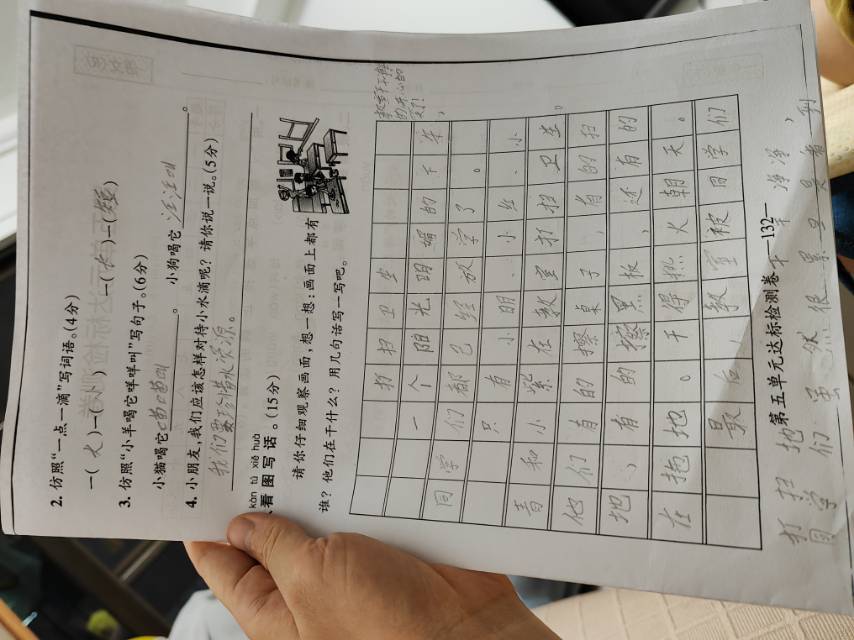 2. 仿照“一点一滴”写词语。(4分)
一( 火 )一( ) 一( 火 )一( )
3. 仿照“小羊喝它咩咩叫”写句子。(6分)
小猫喝它喵喵叫。 小狗喝它汪汪叫。
4. 小朋友,我们应该怎样对待小水滴呢?请你说一说。(5分)
我们要珍惜水资源。
kàn tú xiě huà
、看图写话。(15分)
请你仔细观察画面,想一想:画面上都有
谁?他们在干什么?用几句话写一写吧。
打扫卫生
一个阳光明媚的下午
同学们都已经放学了。
只有小明、小丝、小
青和小紫在教室打扫卫生。
他们有的擦桌子,有的扫
地,有的擦黑板,还有的
在拖地。干得热火朝天。
最后,教室被同学们
第五单元达标检测卷 —132—
打扫地干干净净,
同学们虽然很累但是看到